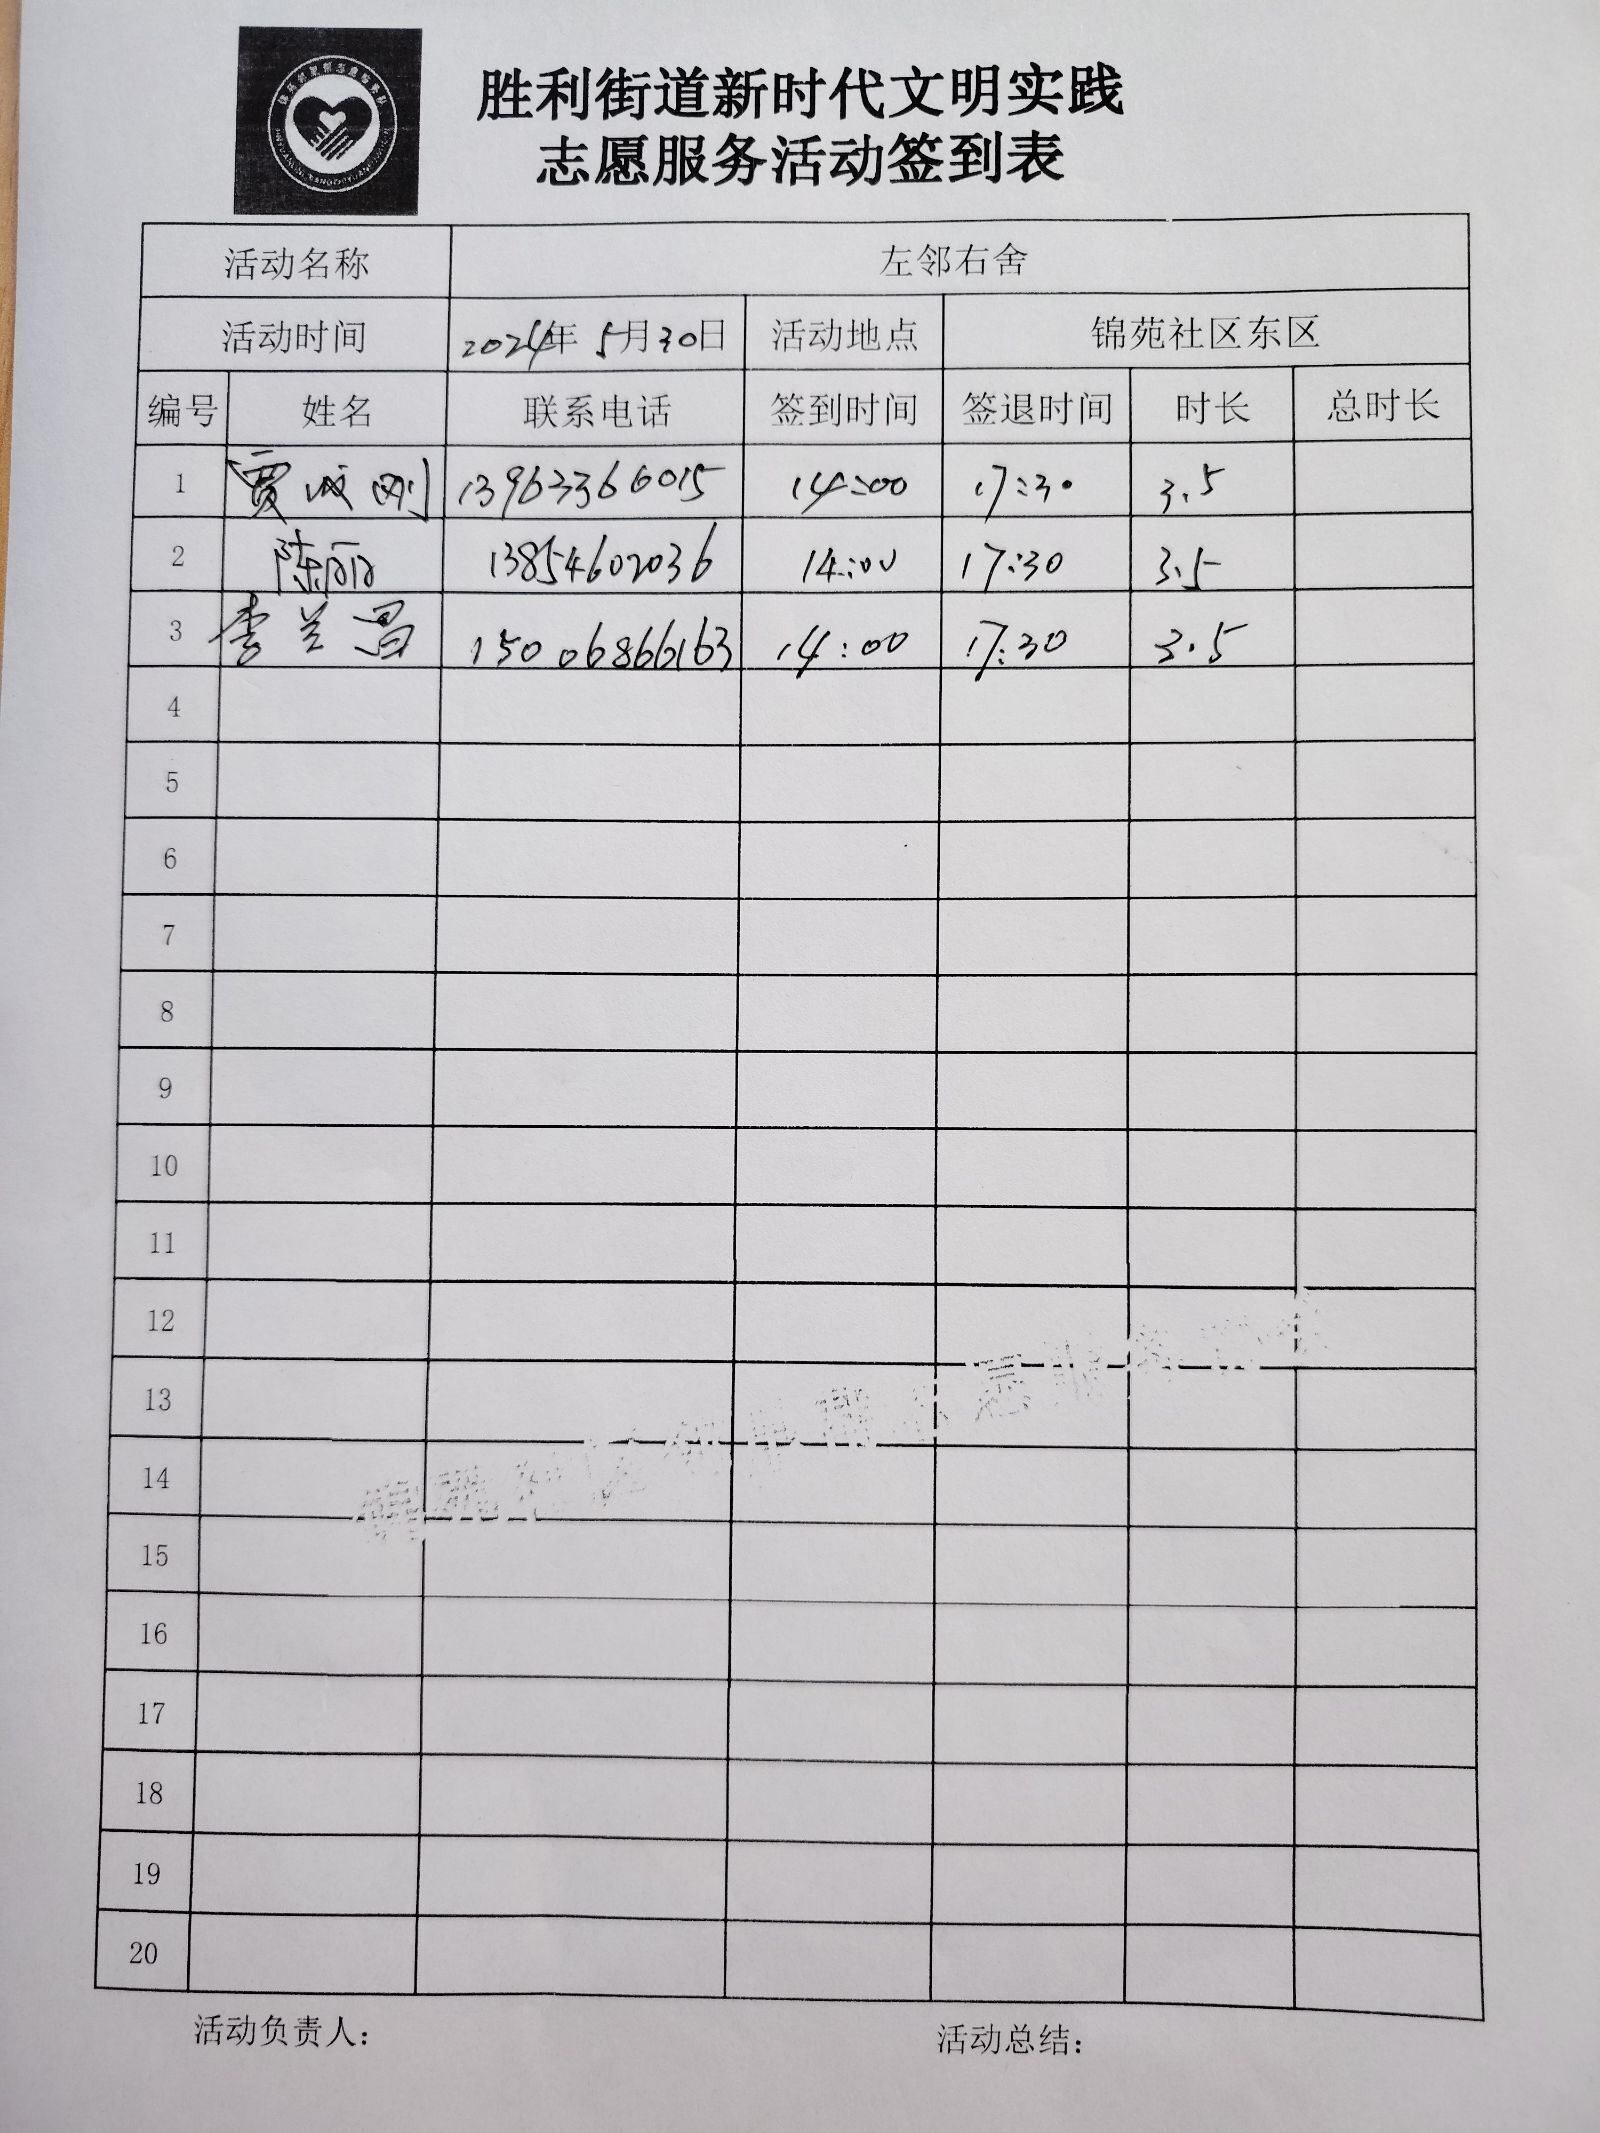 胜利街道新时代文明实践
志愿服务活动签到表
活动名称 左邻右舍
活动时间 2024年 5月30日 活动地点 锦苑社区东区
编号 姓名 联系电话 签到时间 签退时间 时长 总时长
1 贾成刚 13963366015 14:00 17:30 3.5
2 陈丽 13854602036 14:00 17:30 3.5
3 李兰昌 15006866163 14:00 17:30 3.5
4
5
6
7
8
9
10
11
12
13
14
15
16
17
18
19
20
活动负责人: 活动总结: